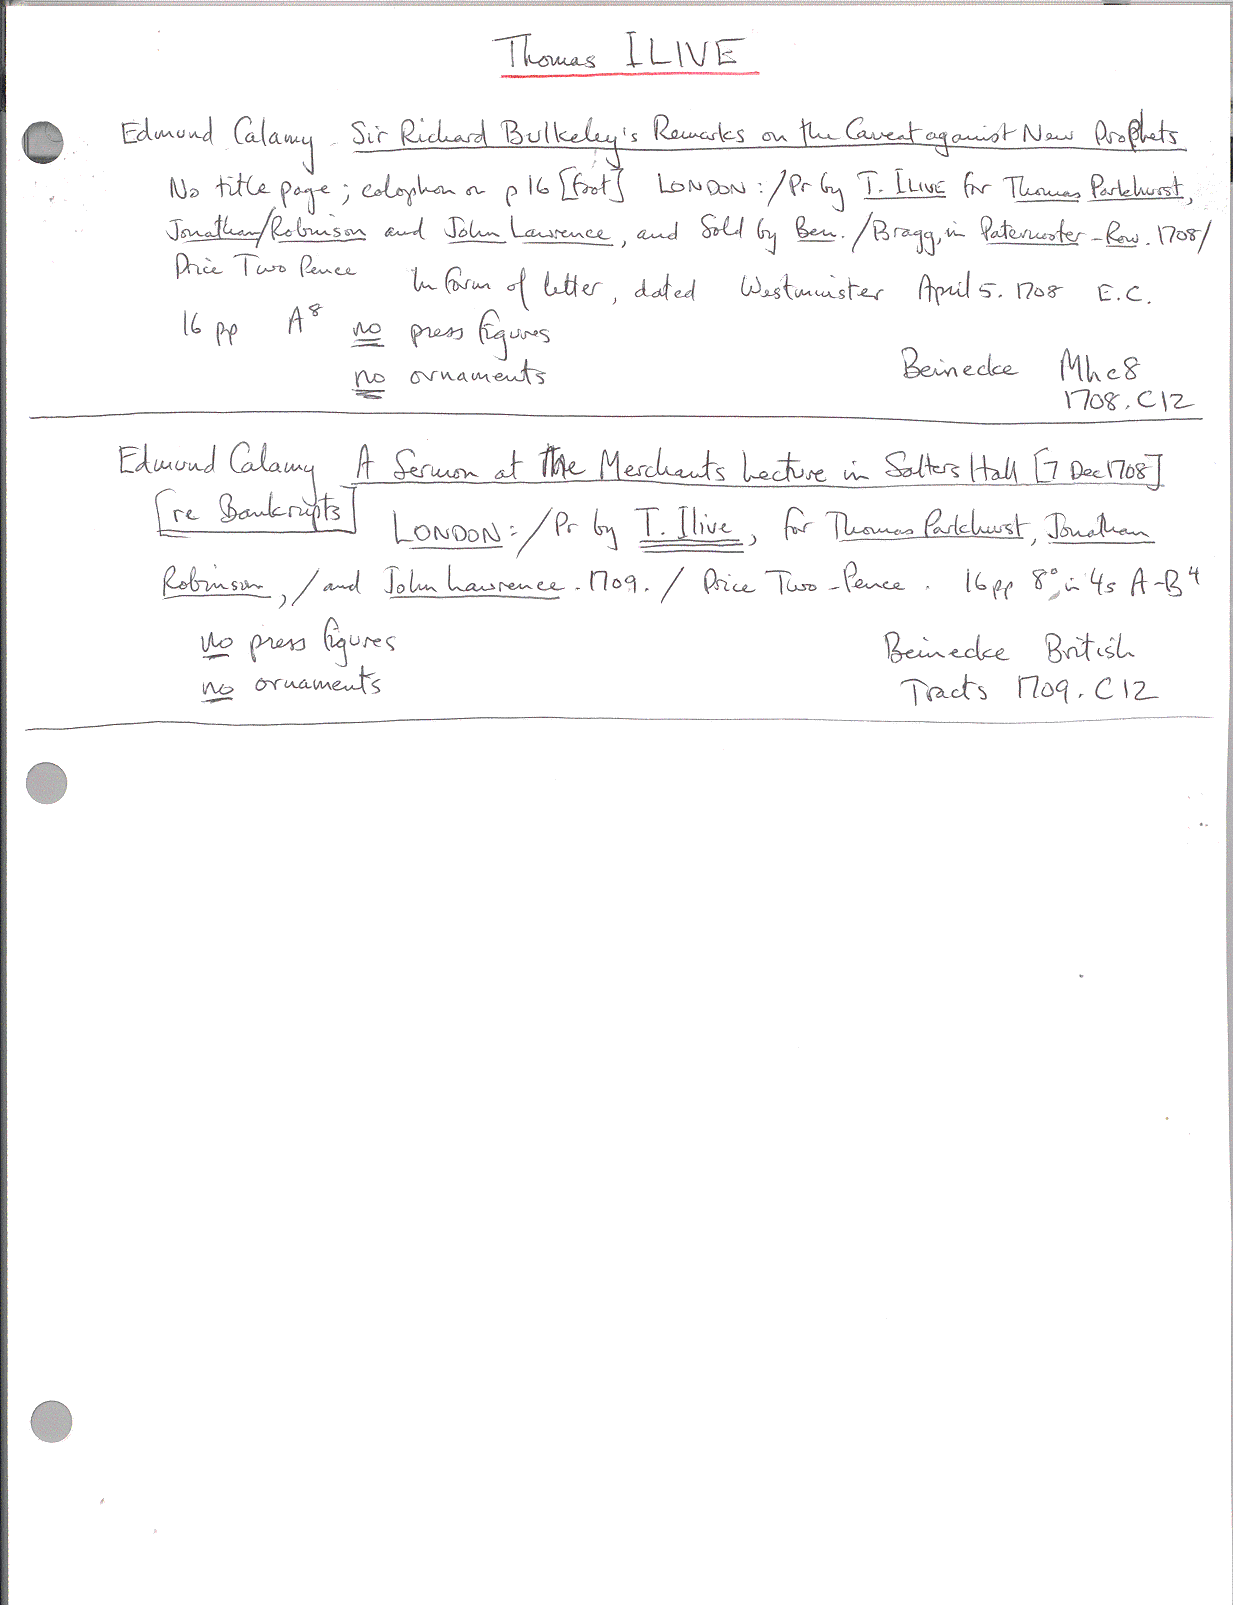 Thomas ILIVE
Edmund Calamy Sir Richard Bulkeley's Remarks on the Caveat against New Prophets
No title page; colophon on p 16 [foot] LONDON: / Pr by T. ILIVE for Thomas Parkhurst,
Jonathan/Robinson and John Lawrence, and Sold by Ben. / Bragg, in Paternoster-Row. 1708/
Price Two Pence In form of letter, dated Westminster April 5. 1708 E.C.
16 pp A⁸ no press figures
no ornaments Beinecke Mhc8
1708. C12
Edmund Calamy A Sermon at the Merchants Lecture in Salters Hall [7 Dec 1708]
[re Bankrupts] LONDON: / Pr by T. Ilive, for Thomas Parkhurst, Jonathan
Robinson, / and John Lawrence. 1709. / Price Two-Pence. 16pp 8° in 4s A-B⁴
no press figures Beinecke British
no ornaments Tracts 1709. C12